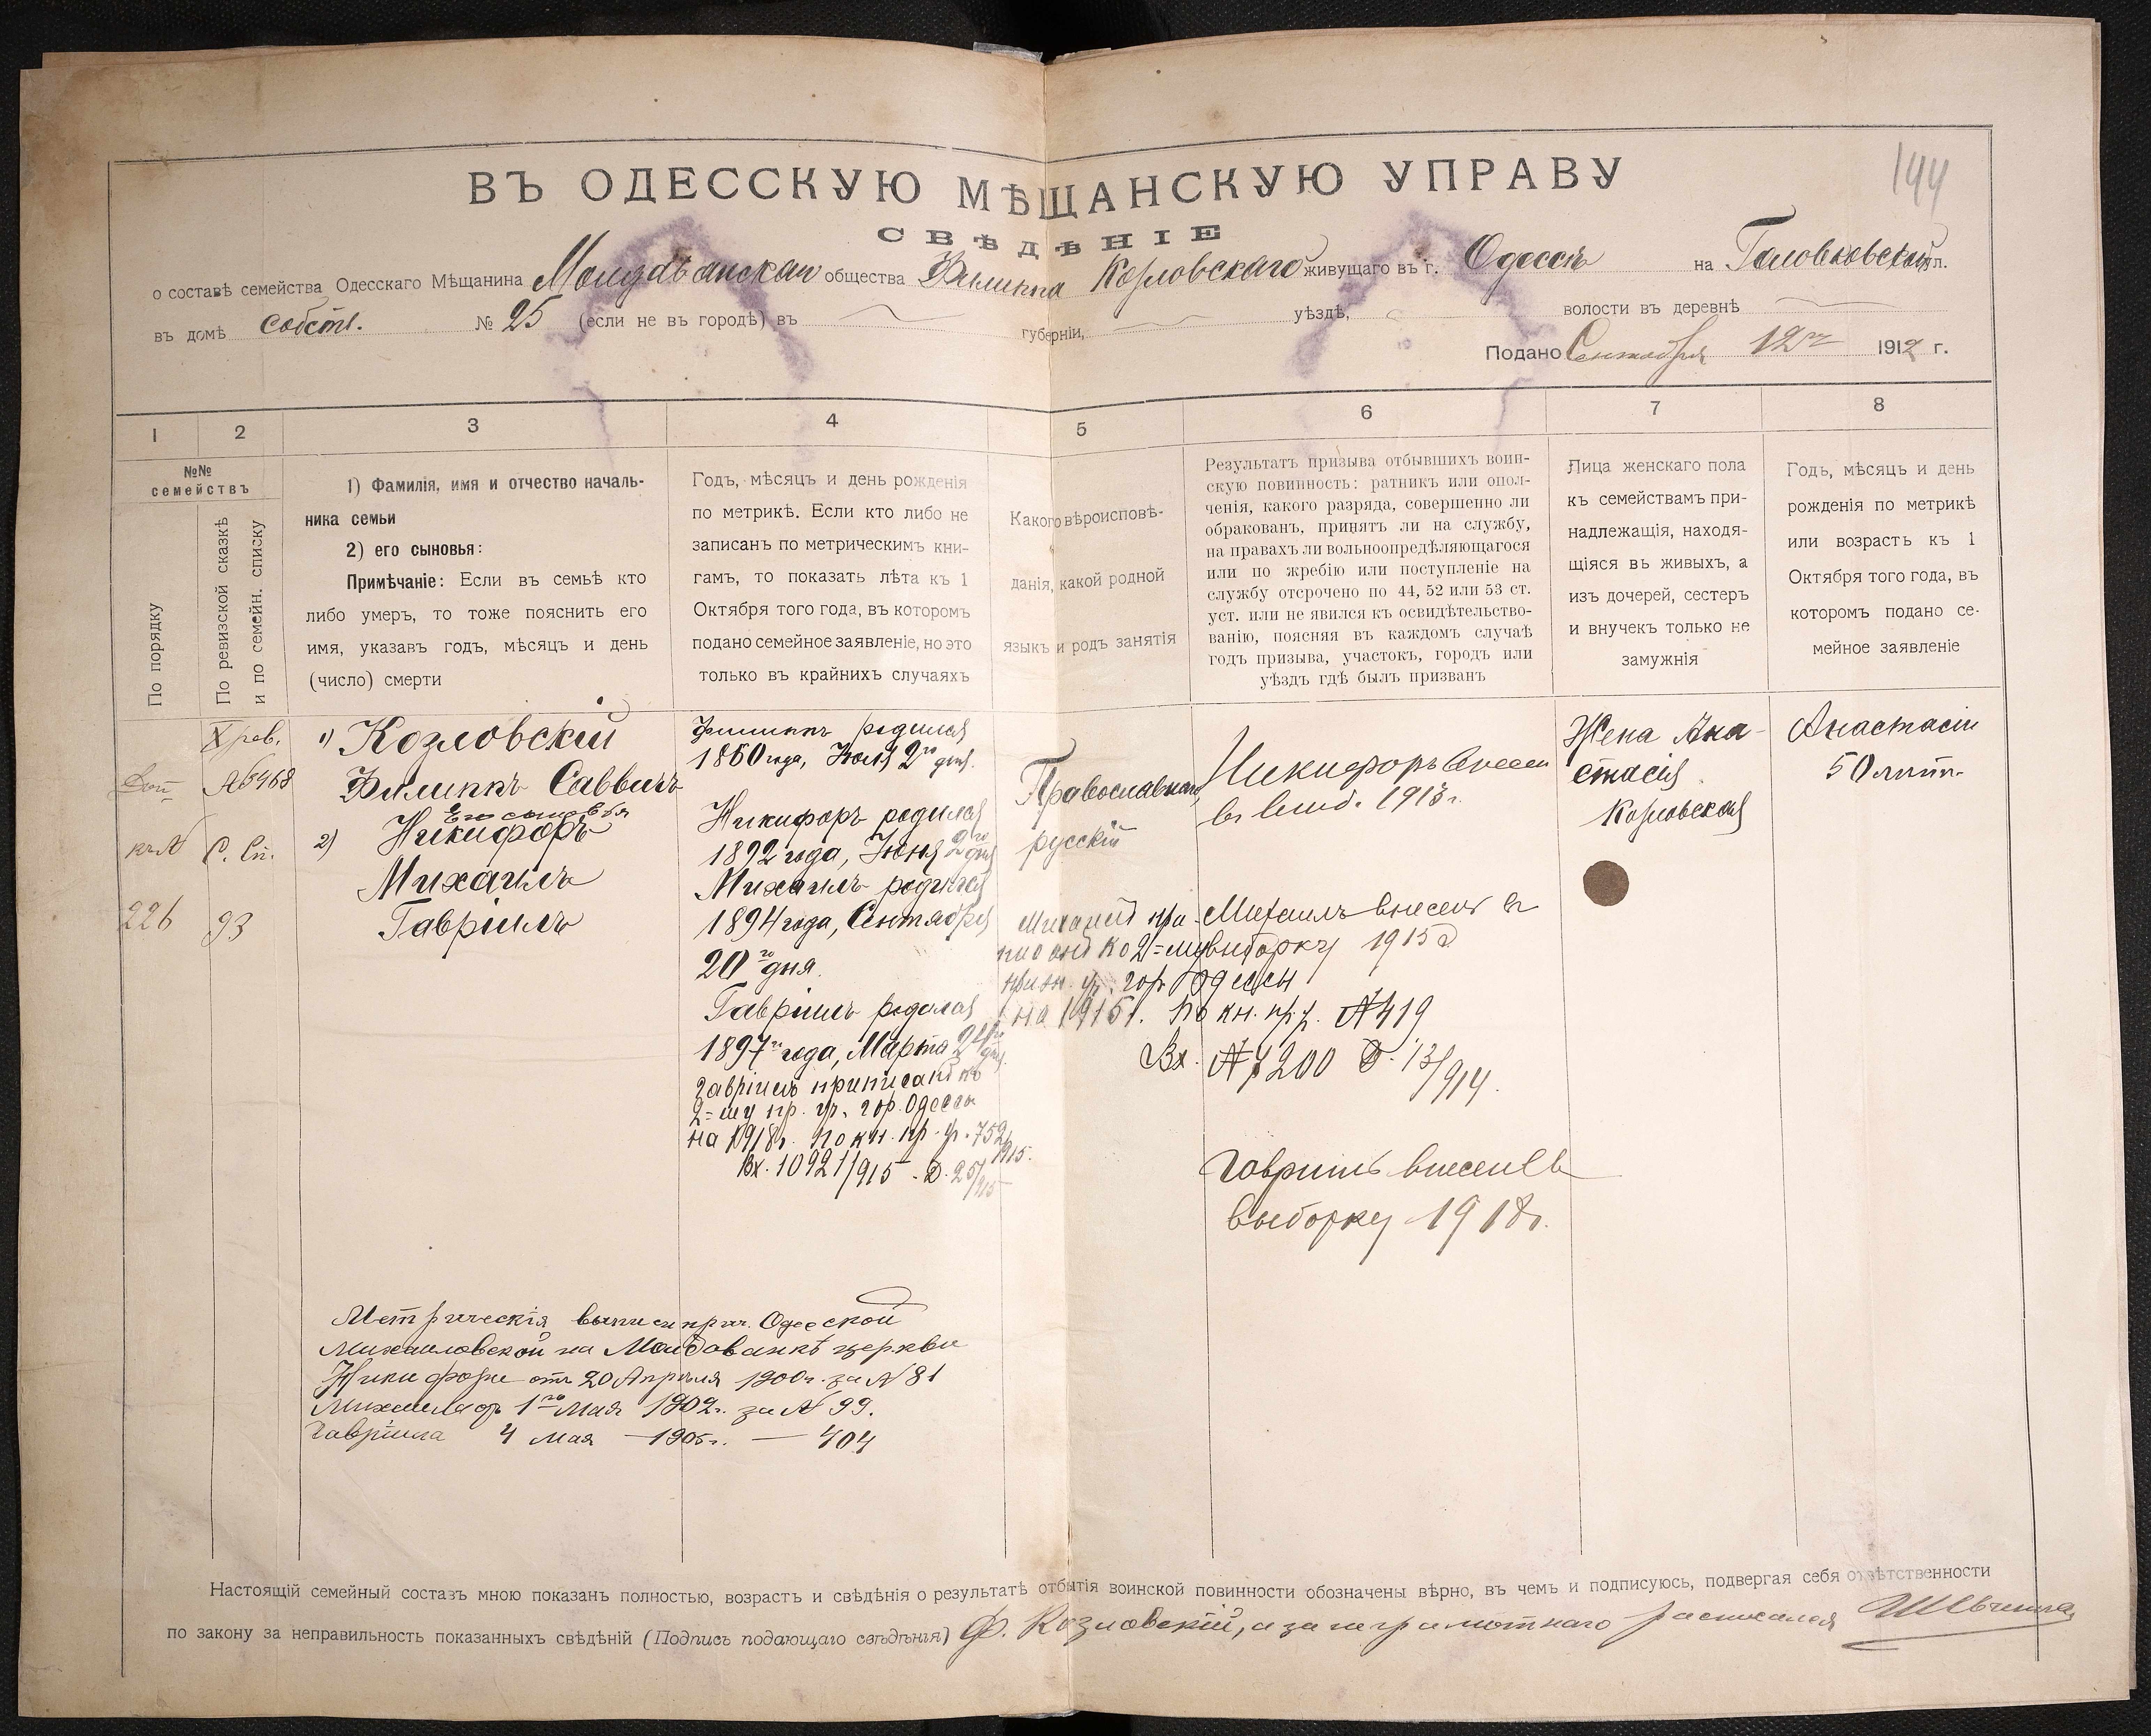 144
ВЪ ОДЕССКУЮ МѢЩАНСКУЮ УПРАВУ
СВѢДѢНІЕ
о составѣ семейства Одесскаго Мѣщанина Молдаванскаго общества Филиппа Козловскаго живущаго въ г. Одессѣ на Головковской ул.
въ домѣ собств. № 25 (если не въ городѣ) въ губерніи, уѣздѣ, волости въ деревнѣ
Подано Сентября 12го 1912 г.
1 2 3 4 5 6 7 8
№№ семействъ
По порядку
По ревизской сказкѣ
и по семейн. списку
1) Фамилія, имя и отчество началь-
ника семьи
2) его сыновья:
Примѣчаніе: Если въ семьѣ кто
либо умеръ, то тоже пояснить его
имя, указавъ годъ, мѣсяцъ и день
(число) смерти
Годъ, мѣсяцъ и день рожденія
по метрикѣ. Если кто либо не
записанъ по метрическимъ кни-
гамъ, то показать лѣта къ 1
Октября того года, въ которомъ
подано семейное заявленіе, но это
только въ крайнихъ случаяхъ
Какого вѣроисповѣ-
данія, какой родной
языкъ и родъ занятія
Результатъ призыва отбывшихъ воин-
скую повинность: ратникъ или опол-
ченія, какого разряда, совершенно ли
обракованъ, принятъ ли на службу,
на правахъ ли вольноопредѣляющагося
или по жребію или поступленіе на
службу отсрочено по 44, 52 или 53 ст.
уст. или не явился къ освидѣтельство-
ванію, поясняя въ каждомъ случаѣ
годъ призыва, участокъ, городъ или
уѣздъ гдѣ былъ призванъ
Лица женскаго пола
къ семействамъ при-
надлежащія, находя-
щіяся въ живыхъ, а
изъ дочерей, сестеръ
и внучекъ только не
замужнія
Годъ, мѣсяцъ и день
рожденія по метрикѣ
или возрастъ къ 1
Октября того года, въ
которомъ подано се-
мейное заявленіе
къ №
226
X рев.
№ 5468
С. Сп.
93
1) Козловскій
Филиппъ Саввичъ
Его сыновья
2) Никифоръ
Михаилъ
Гавріилъ
Филиппъ родился
1860 года, Іюля 2го дня.
Никифоръ родился
1892 года, Іюня 2го дня
Михаилъ родился
1894 года, Сентября
20го дня.
Гавріилъ родился
1897го года, Марта 24го дня.
Гавріилъ приписанъ ко
2=му пр. уч. гор. Одессы
на 1918г. по кн. пр. уч. 752/1915.
Вх. 10921/915 - Д. 25/915
Православный,
русскій
Никифоръ внесен
в 1913г.
Михаилъ при-
писанъ ко 2=му
призн. уч. гор. Одессы
на 1915г. по кн. пр. у. № 419
Вх. № 7200 Д. 13/914.
Михаилъ внесенъ в
выборку 1915г
Гавриилъ внесенъ в
выборку 1918г.
Жена Ана-
стасія
Козловская
Анастасіи
50 лѣтъ
Метрическія выписи прич. Одесской
Михаиловской на Молдаванкѣ церкви
Никифора отъ 20 Апрѣля 1900г. за № 81
Михаила отъ 1го Мая 1902г. за № 99.
Гавріила 4 Мая — 1905г. — 404
Настоящій семейный составъ мною показанъ полностью, возрастъ и свѣдѣнія о результатѣ отбытія воинской повинности обозначены вѣрно, въ чемъ и подписуюсь, подвергая себя отвѣтственности
по закону за неправильность показанныхъ свѣдѣній (Подпись подающаго свѣдѣнія) Ф. Козловскій, а за неграмотнаго расписался